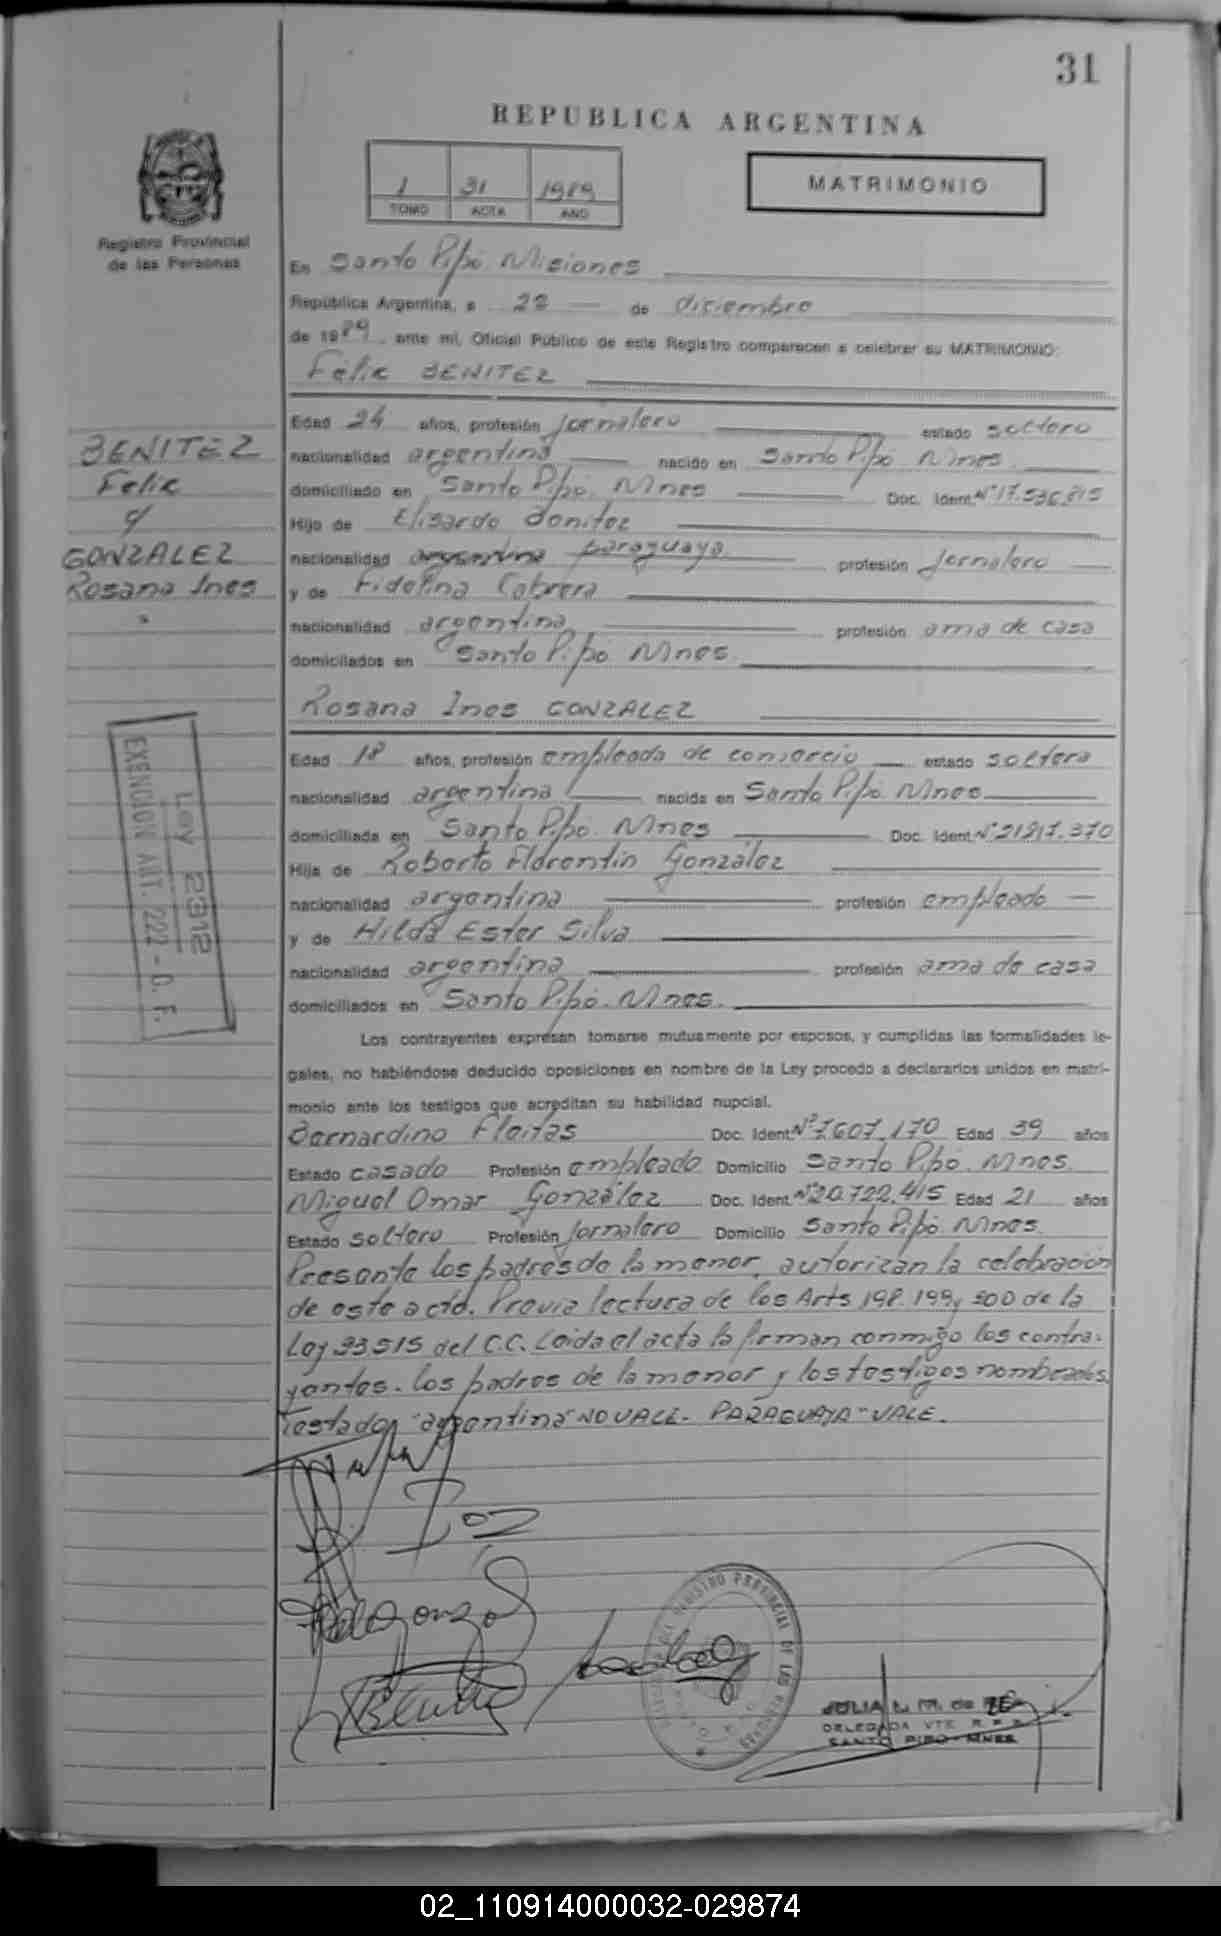 31
REPUBLICA ARGENTINA
1 31 1989
TOMO ACTA AÑO
MATRIMONIO
Registro Provincial
de las Personas
En Santo Pipó Misiones
República Argentina, a 22 de diciembre
de 1989, ante mi, Oficial Público de este Registro comparecen a celebrar su MATRIMONIO:
Félix BENITEZ
BENITEZ
Felix
y
GONZALEZ
Rosana Ines
Edad 24 años, profesión jornalero estado soltero
nacionalidad argentina nacido en Santo Pipó Mnes.
domiciliado en Santo Pipó. Mnes Doc. Ident. Nº 17.536.815
Hijo de Elisardo Benitez
nacionalidad argentina paraguaya profesión jornalero
y de Fidelina Cabrera
nacionalidad argentina profesión ama de casa
domiciliados en Santo Pipó Mnes.
Rosana Ines GONZALEZ
Edad 18 años, profesión empleada de comercio estado soltera
nacionalidad argentina nacida en Santo Pipó. Mnes
domiciliada en Santo Pipó. Mnes Doc. Ident. Nº 21.817.370
Hija de Roberto Florentin González
nacionalidad argentina profesión empleado
y de Hilda Ester Silva
nacionalidad argentina profesión ama de casa
domiciliados en Santo Pipó. Mnes.
Ley 2312
EXENCION ART. 222 - C. F.
Los contrayentes expresan tomarse mutuamente por esposos, y cumplidas las formalidades le-
gales, no habiéndose deducido oposiciones en nombre de la Ley procedo a declararlos unidos en matri-
monio ante los testigos que acreditan su habilidad nupcial.
Bernardino Fleitas Doc. Ident. Nº 7.607.170 Edad 39 años
Estado casado Profesión empleado Domicilio Santo Pipó. Mnes.
Miguel Omar González Doc. Ident. Nº 20.722.415 Edad 21 años
Estado soltero Profesión jornalero Domicilio Santo Pipó Mnes.
Presente los padres de la menor, autorizan la celebración
de este acto. Previa lectura de los Arts 198. 199 y 200 de la
Ley 23515 del C.C. Leida el acta la firman conmigo los contra-
yentes. los padres de la menor y los testigos nombrados.
Testado, "argentina" NO VALE- PARAGUAYA" VALE.
REGISTRO PROVINCIAL DE LAS PERSONAS
JULIA L. M. de
DELEGADA VTE R. P. P.
SANTO PIPO - MNES
02_110914000032-029874